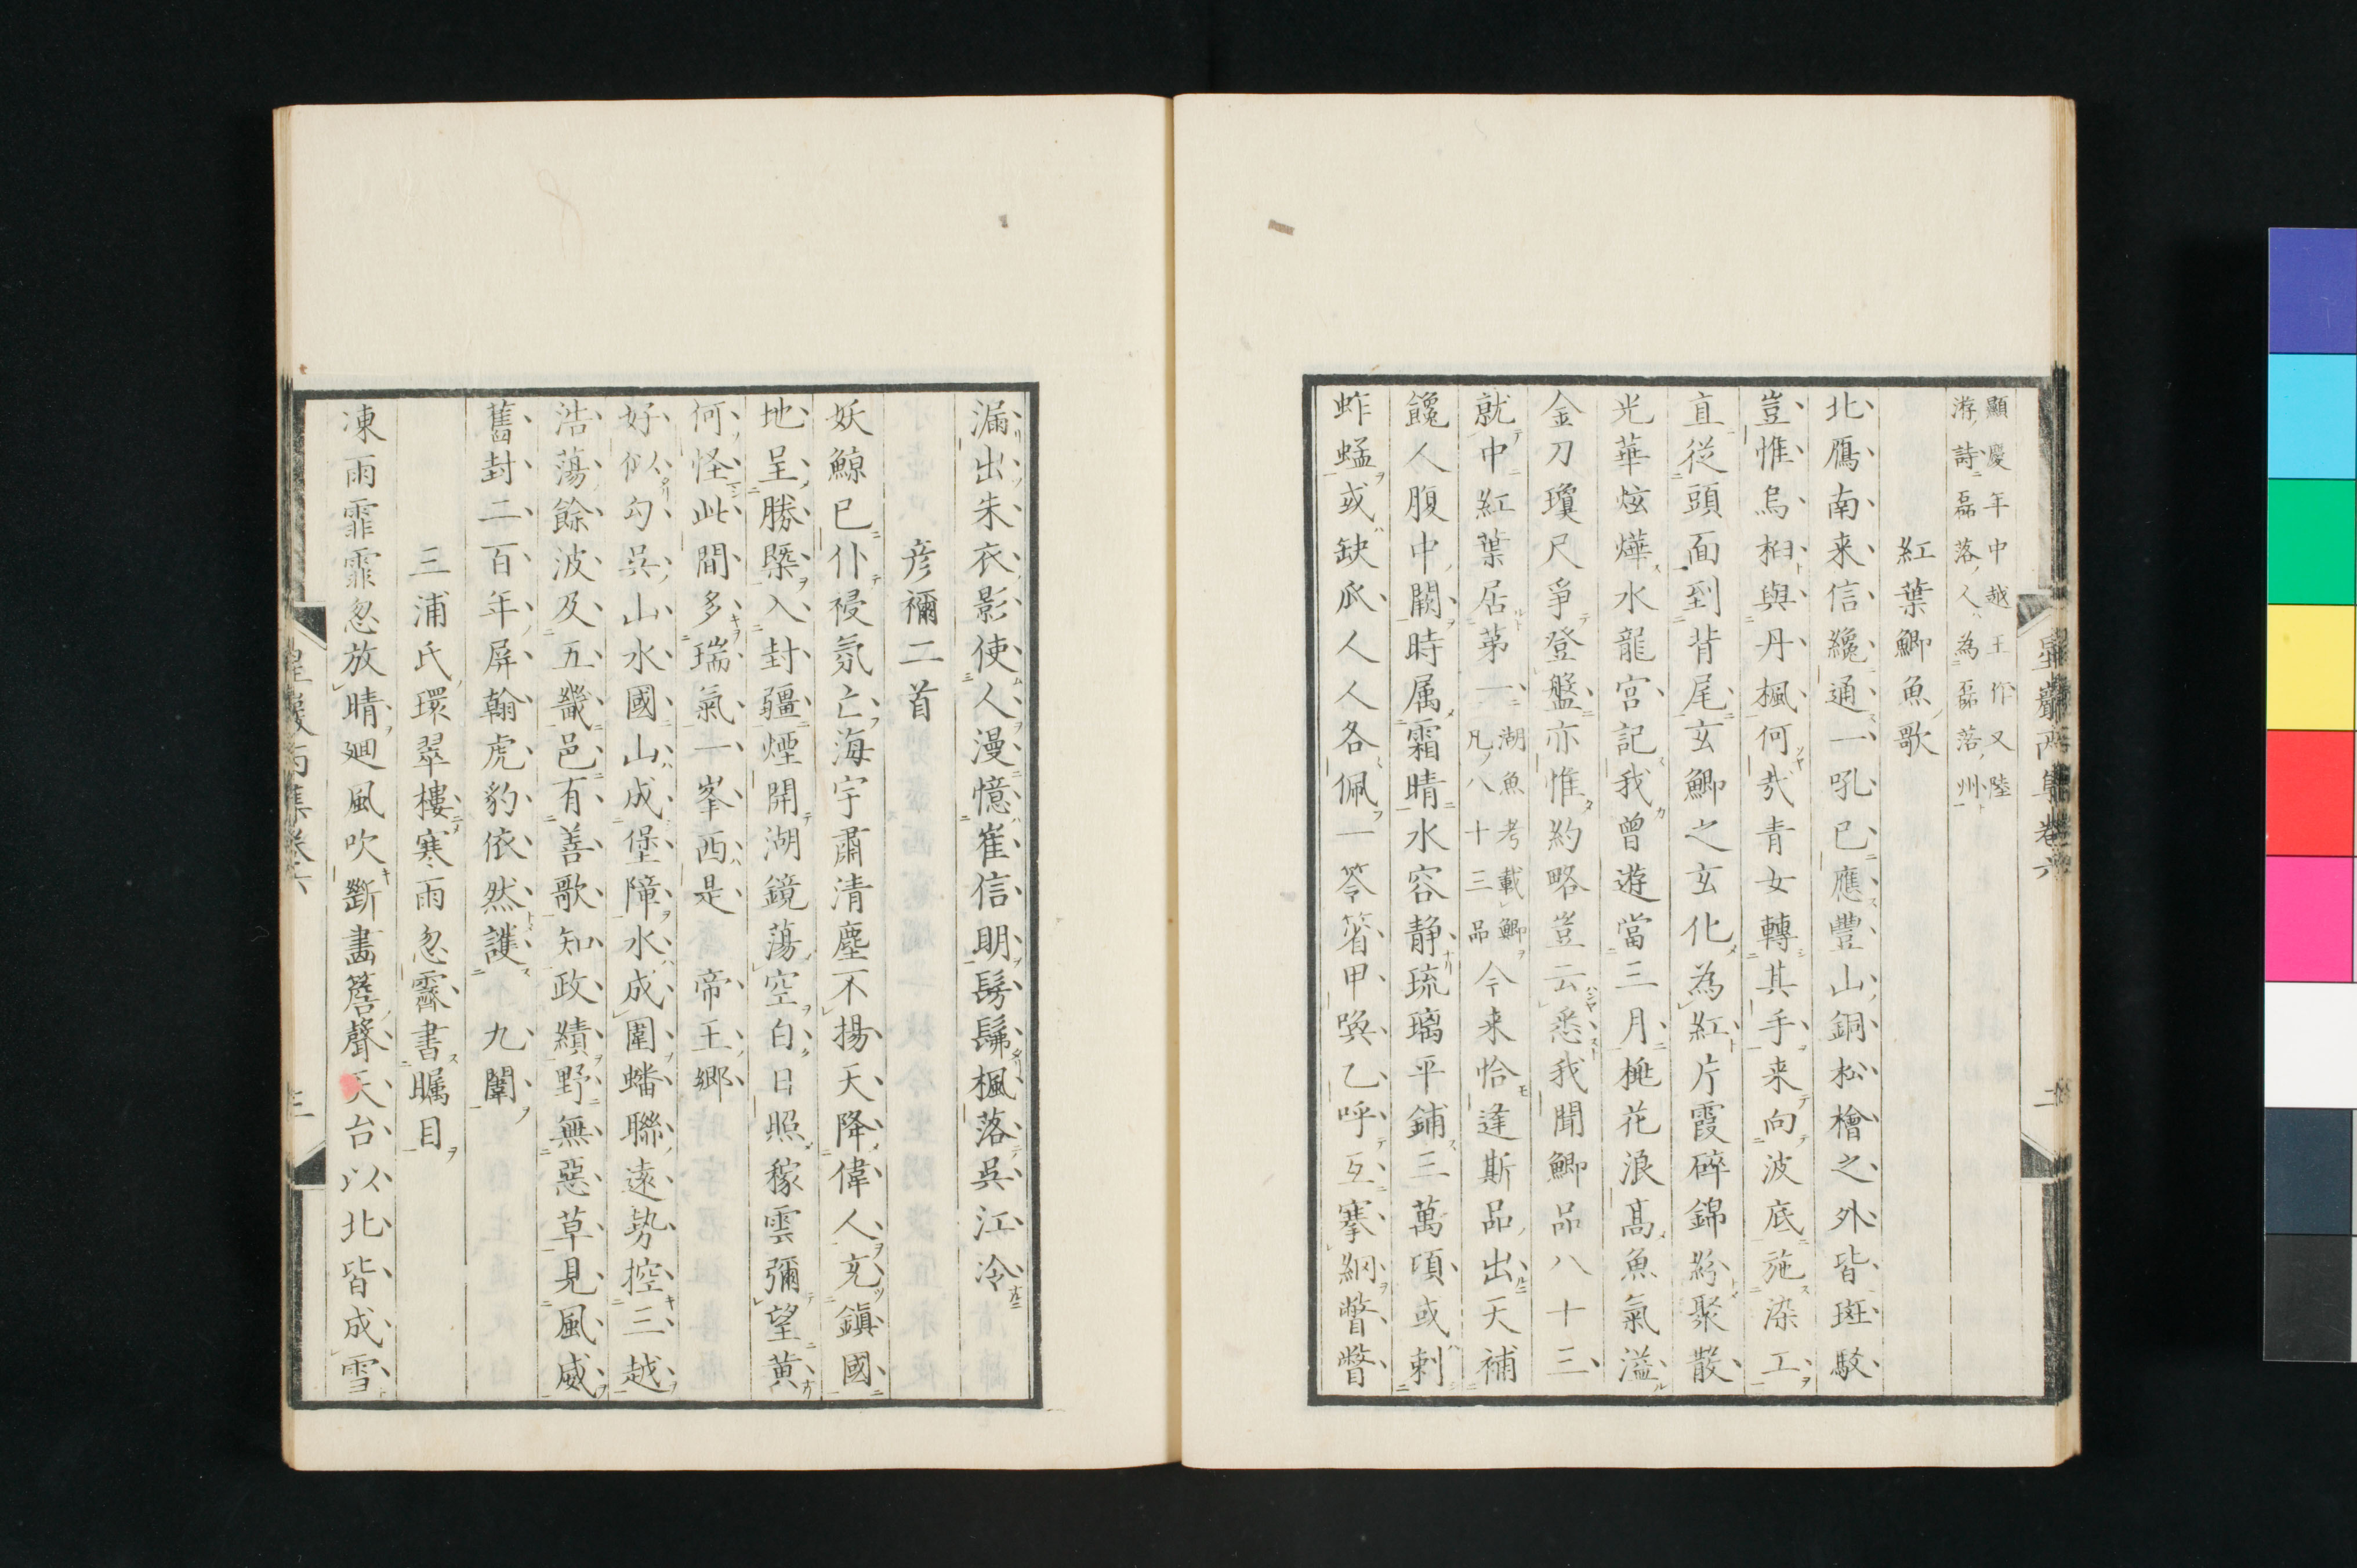 顯慶年中越王作又陸
游詩磊落人為磊落州
紅葉鯽魚歌
北鴈南来信纔通一吼已應豐山銅松檜之外皆斑駁
豈惟烏桕與丹楓何哉青女轉其手来向波底施染工
直從頭面到背尾玄鯽之玄化為紅片霞碎錦紛聚散
光華炫燁水龍宮記我曾遊當三月桃花浪高魚氣溢
金刀瓊尺爭登盤亦惟約略豈云悉我聞鯽品八十三
就中紅葉居第一湖魚考載鯽凡八十三品今来恰逢斯品出天補
饞人腹中闕時属霜晴水容静琉璃平鋪三萬頃或剌
蚱蜢或缺瓜人人各佩一笭箵甲喚乙呼互搴網瞥瞥
漏出朱衣影使人漫憶崔信明髣髴楓落呉江冷
彦禰二首
妖鯨已仆祲氛亡海宇肅清塵不揚天降偉人充鎮國
地呈勝槩入封疆煙開湖鏡蕩空白日照稼雲彌望黄
何怪此間多瑞氣一峯西是 帝王郷
好似勾呉山水國山成堡障水成圍蟠聯遠勢控三越
浩蕩餘波及五畿邑有善歌知政績野無惡草見風威
舊封二百年屏翰虎豹依然護 九闈
三浦氏環翠樓寒雨忽霽書矚目
凍雨霏霏忽放晴廻風吹斷畵簷聲天台以北皆成雪